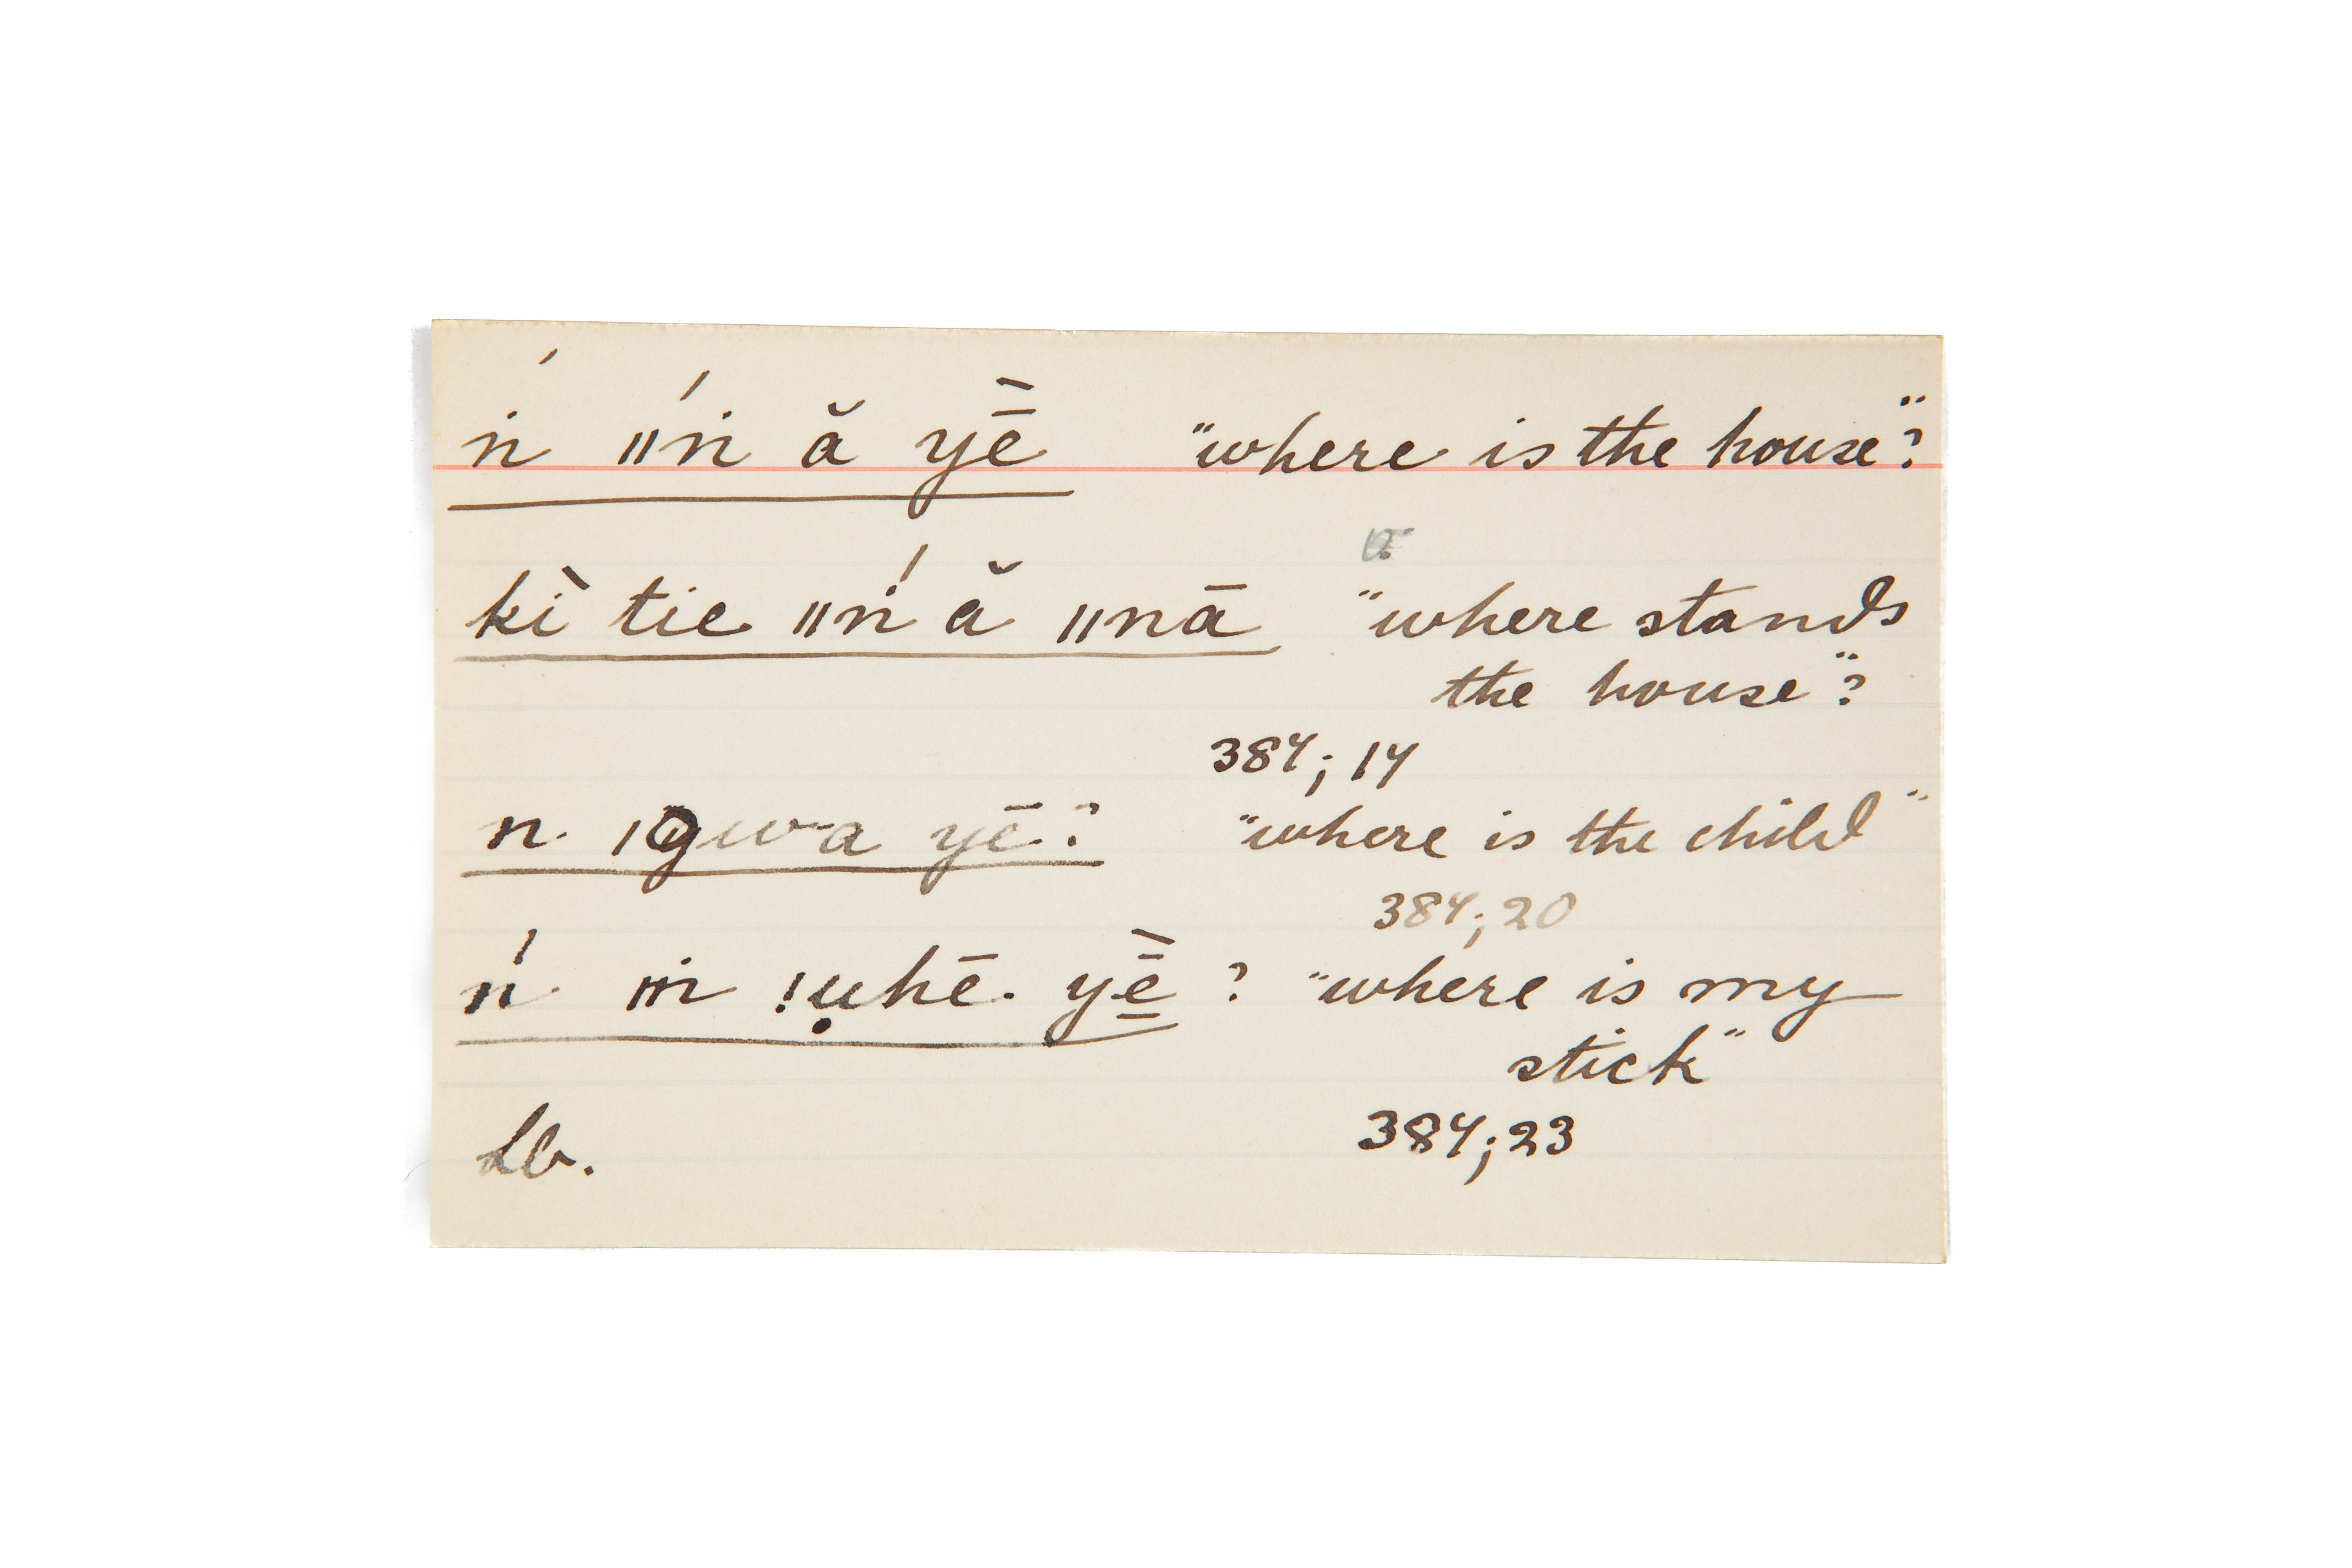 ṅ́ ǁṅ́ ă yḕ "where is the house"?
kì tie ǁṅ́ ă ǁnā "where stands
the house"?
384; 14
n ǀgwa yē? "where is the child"
384; 20
ṅ́ ṅ !ụhē yḕ̱ ? "where is my
stick"
384; 23
Lb.